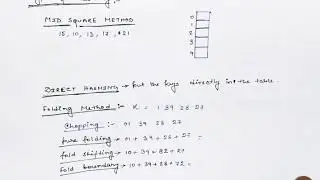 MID SQUARE METHOD
15, 10, 13, 17, 21
0
1
2
3
4
DIRECT HASHING → Put the keys directly in the table.
Folding Method :- K = 1 39 28 27
Chopping :- 01 39 28 27
pure folding :- 01 + 39 + 28 + 27 =
fold shifting :- 10 + 39 + 82 + 27
Fold boundary :- 10 + 39 + 28 + 72 =